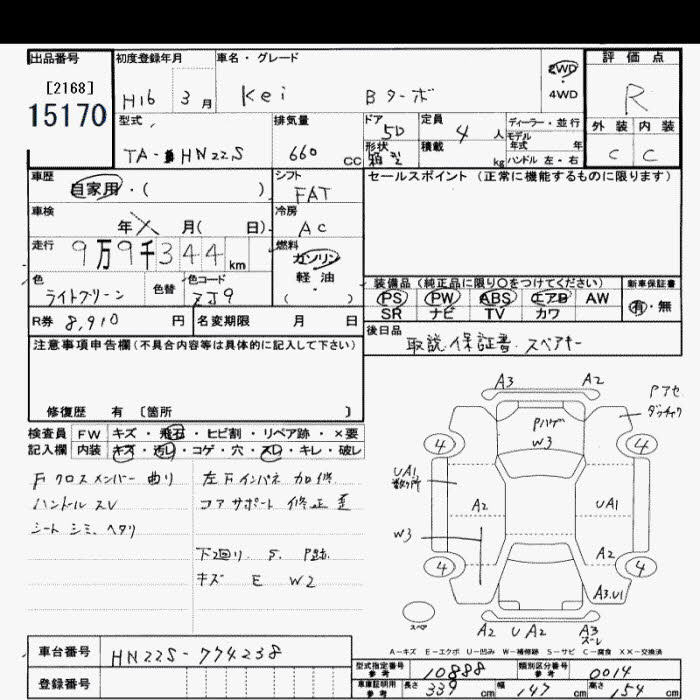 出品番号 初度登録年月 車名・グレード 評価点
[2168] 2WD R
15170 H16 3月 Kei Bターボ 4WD
型式 排気量 ドア 5D 定員 4人 ディーラー・並行 外装 内装
TA- HN22S 660 CC 形状 箱型 積載 kg モデル年式 年 ハンドル 左・右 C C
車歴 シフト セールスポイント (正常に機能するものに限ります)
自家用・( ) FAT
車検 年 月( 日) 冷房 AC
走行 9万9千344km 燃料 ガソリン
軽油
( )
色 ライトグリーン 色替 色コード ZJ9
装備品 (純正品に限り〇をつけてください) 新車保証書
PS PW ABS エアB AW 有・無
SR ナビ TV カワ
R券 8,910 円 名変期限 月 日
後日品 取説.保証書.スペアキー
注意事項申告欄(不具合内容等は具体的に記入して下さい)
修復歴 有 〔箇所 〕
検査員 FW キズ・飛石・ヒビ割・リペア跡・×要
記入欄 内装 キズ・汚レ・コゲ・穴・スレ・キレ・破レ
Fクロスメンバー 曲り 左Fインパネ 加修
ハンドル スレ コアサポート 修正歪
シート シミ、ヘタリ
下回り S. P跡.
キズ E W2
A3 A2
Pハゲ W3
4 4
UA1 数ヶ所
A2 UA1
W3
A2
4 4
A3.U1
スペア
A2 UA2 A3 スーレ
A-キズ E-エクボ U-凹み W-補修跡 S-サビ C-腐食 XX-交換済
車台番号 HN22S-774238
登録番号
型式指定番号 参考 10888 類別区分番号 参考 0014
車庫証明用 参考 長さ 339cm 幅 147cm 高さ 154cm